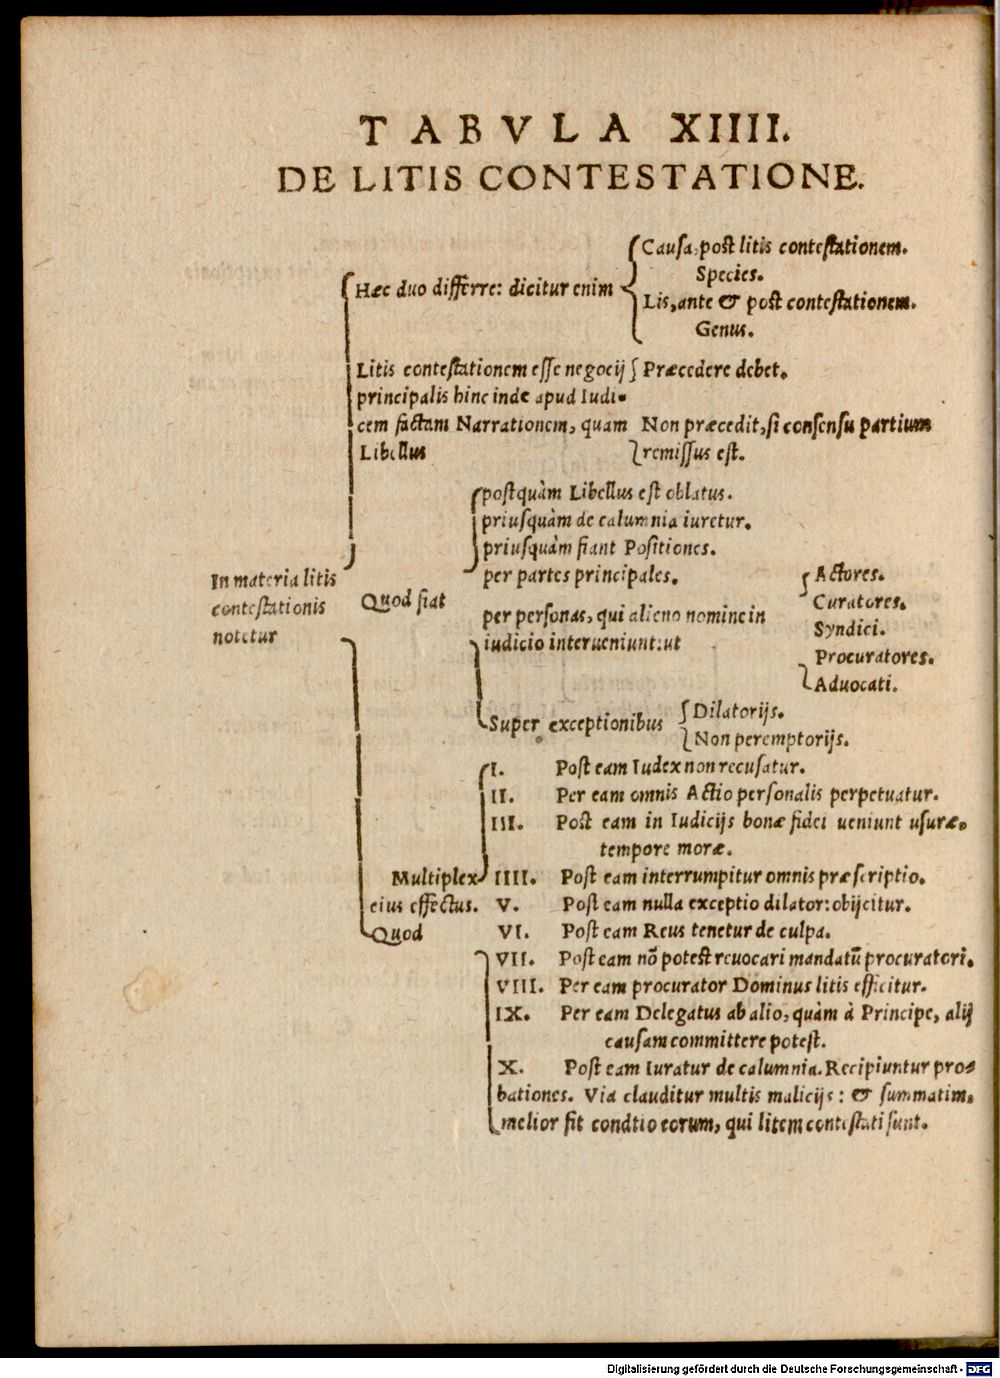 TABVLA XIIII.
DE LITIS CONTESTATIONE.
In materia litis
contestationis
notetur
Hæc duo differre: dicitur enim
Causa, post litis contestationem.
Species.
Lis, ante & post contestationem.
Genus.
Litis contestationem esse negocij
principalis hinc inde apud Iudi-
cem factam Narrationem, quam
Libellus
Præcedere debet.
Non præcedit, si consensu partium
remissus est.
Quod fiat
postquàm Libellus est oblatus.
priusquàm de calumnia iuretur.
priusquàm fiant Positiones.
per partes principales.
per personas, qui alieno nomine in
iudicio interueniunt: ut
Actores.
Curatores.
Syndici.
Procuratores.
Aduocati.
Super exceptionibus
Dilatorijs.
Non peremptorijs.
Multiplex
eius effectus.
Quod
I. Post eam Iudex non recusatur.
II. Per eam omnis Actio personalis perpetuatur.
III. Post eam in Iudicijs bonæ fidei ueniunt usuræ,
tempore moræ.
IIII. Post eam interrumpitur omnis præscriptio.
V. Post eam nulla exceptio dilator: obijcitur.
VI. Post eam Reus tenetur de culpa.
VII. Post eam nõ potest reuocari mandatũ procuratori.
VIII. Per eam procurator Dominus litis efficitur.
IX. Per eam Delegatus ab alio, quàm à Principe, alij
causam committere potest.
X. Post eam Iuratur de calumnia. Recipiuntur pro-
bationes. Via clauditur multis malicijs: & summatim,
melior fit condtio eorum, qui litem contestati sunt.
Digitalisierung gefördert durch die Deutsche Forschungsgemeinschaft - DFG